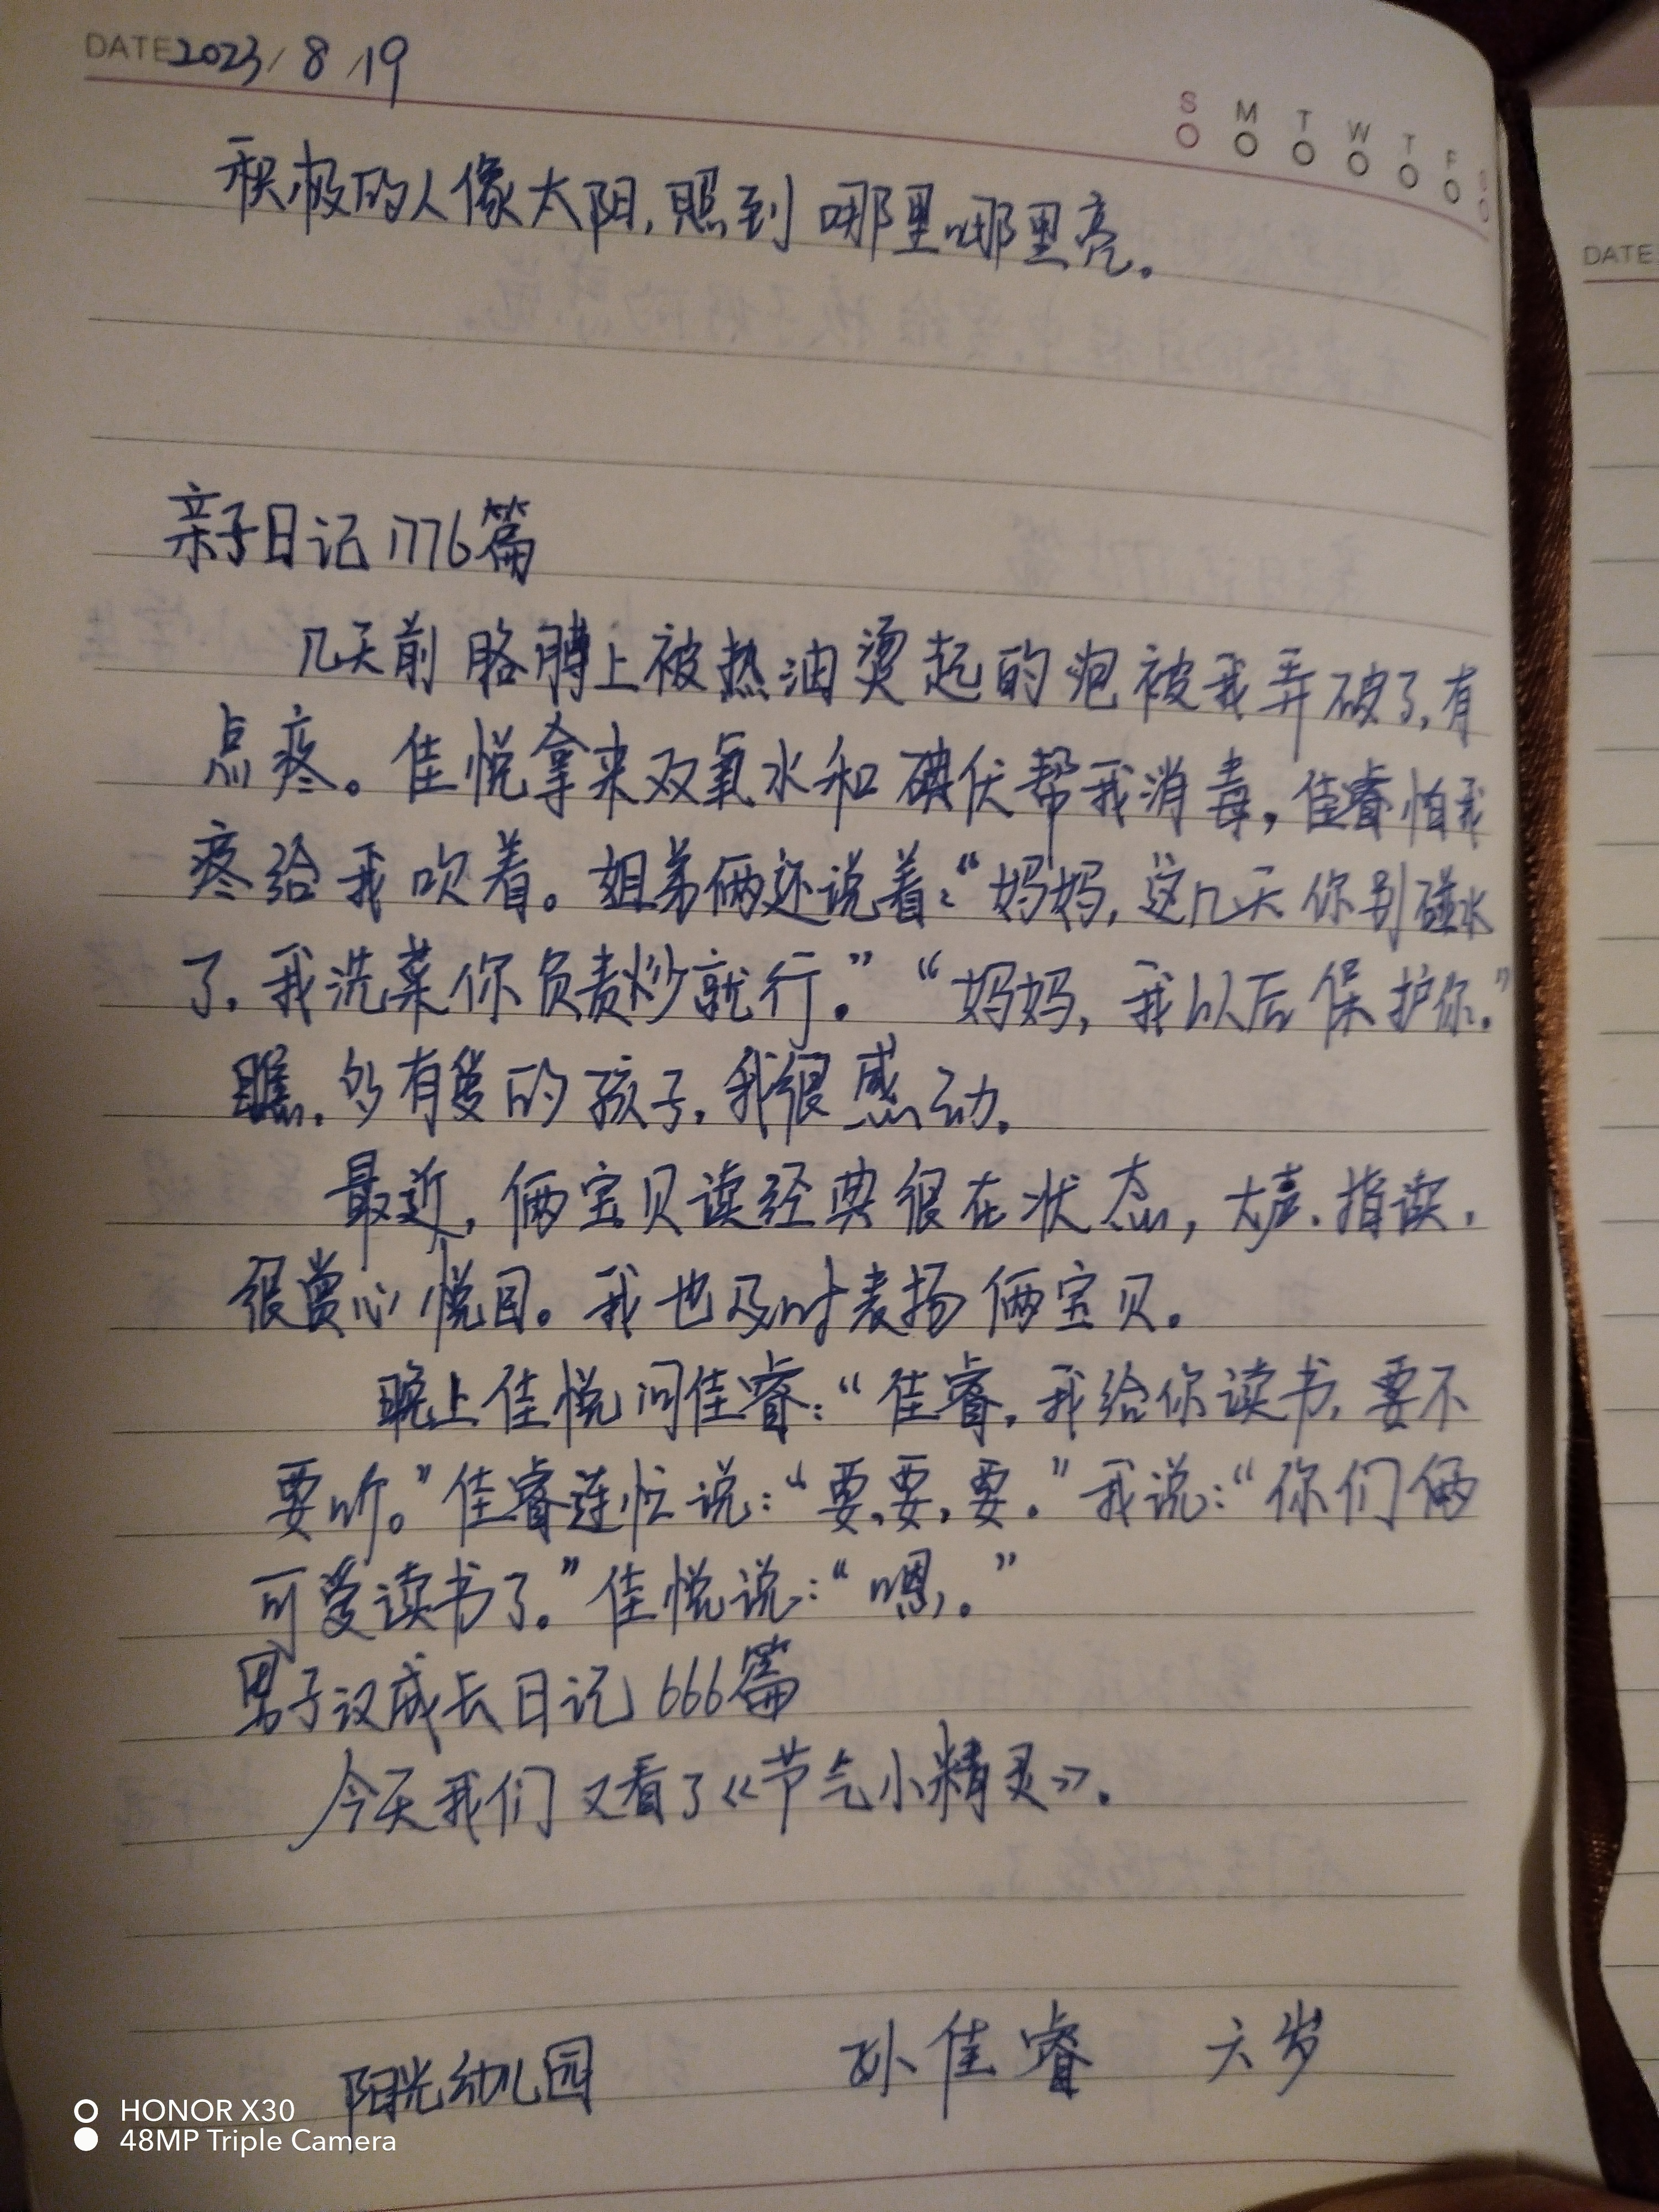 DATE 2023/8/19
S M T W T F S
积极的人像太阳,照到哪里哪里亮。
DATE
亲子日记1776篇
几天前胳膊上被热油烫起的泡被我弄破了,有
点疼。佳悦拿来双氧水和碘伏帮我消毒,佳睿怕我
疼给我吹着。姐弟俩还说着:“妈妈,这几天你别碰水
了,我洗菜你负责炒就行。”“妈妈,我以后保护你。”
瞧,多有爱的孩子,我很感动。
最近,俩宝贝读经典很在状态,大声、指读,
很赏心悦目。我也及时表扬俩宝贝。
晚上佳悦问佳睿:“佳睿,我给你读书,要不
要听。”佳睿连忙说:“要,要,要。”我说:“你们俩
可爱读书了。”佳悦说:“嗯。”
男子汉成长日记666篇
今天我们又看了《节气小精灵》.
阳光幼儿园 孙佳睿 六岁
HONOR X30
48MP Triple Camera